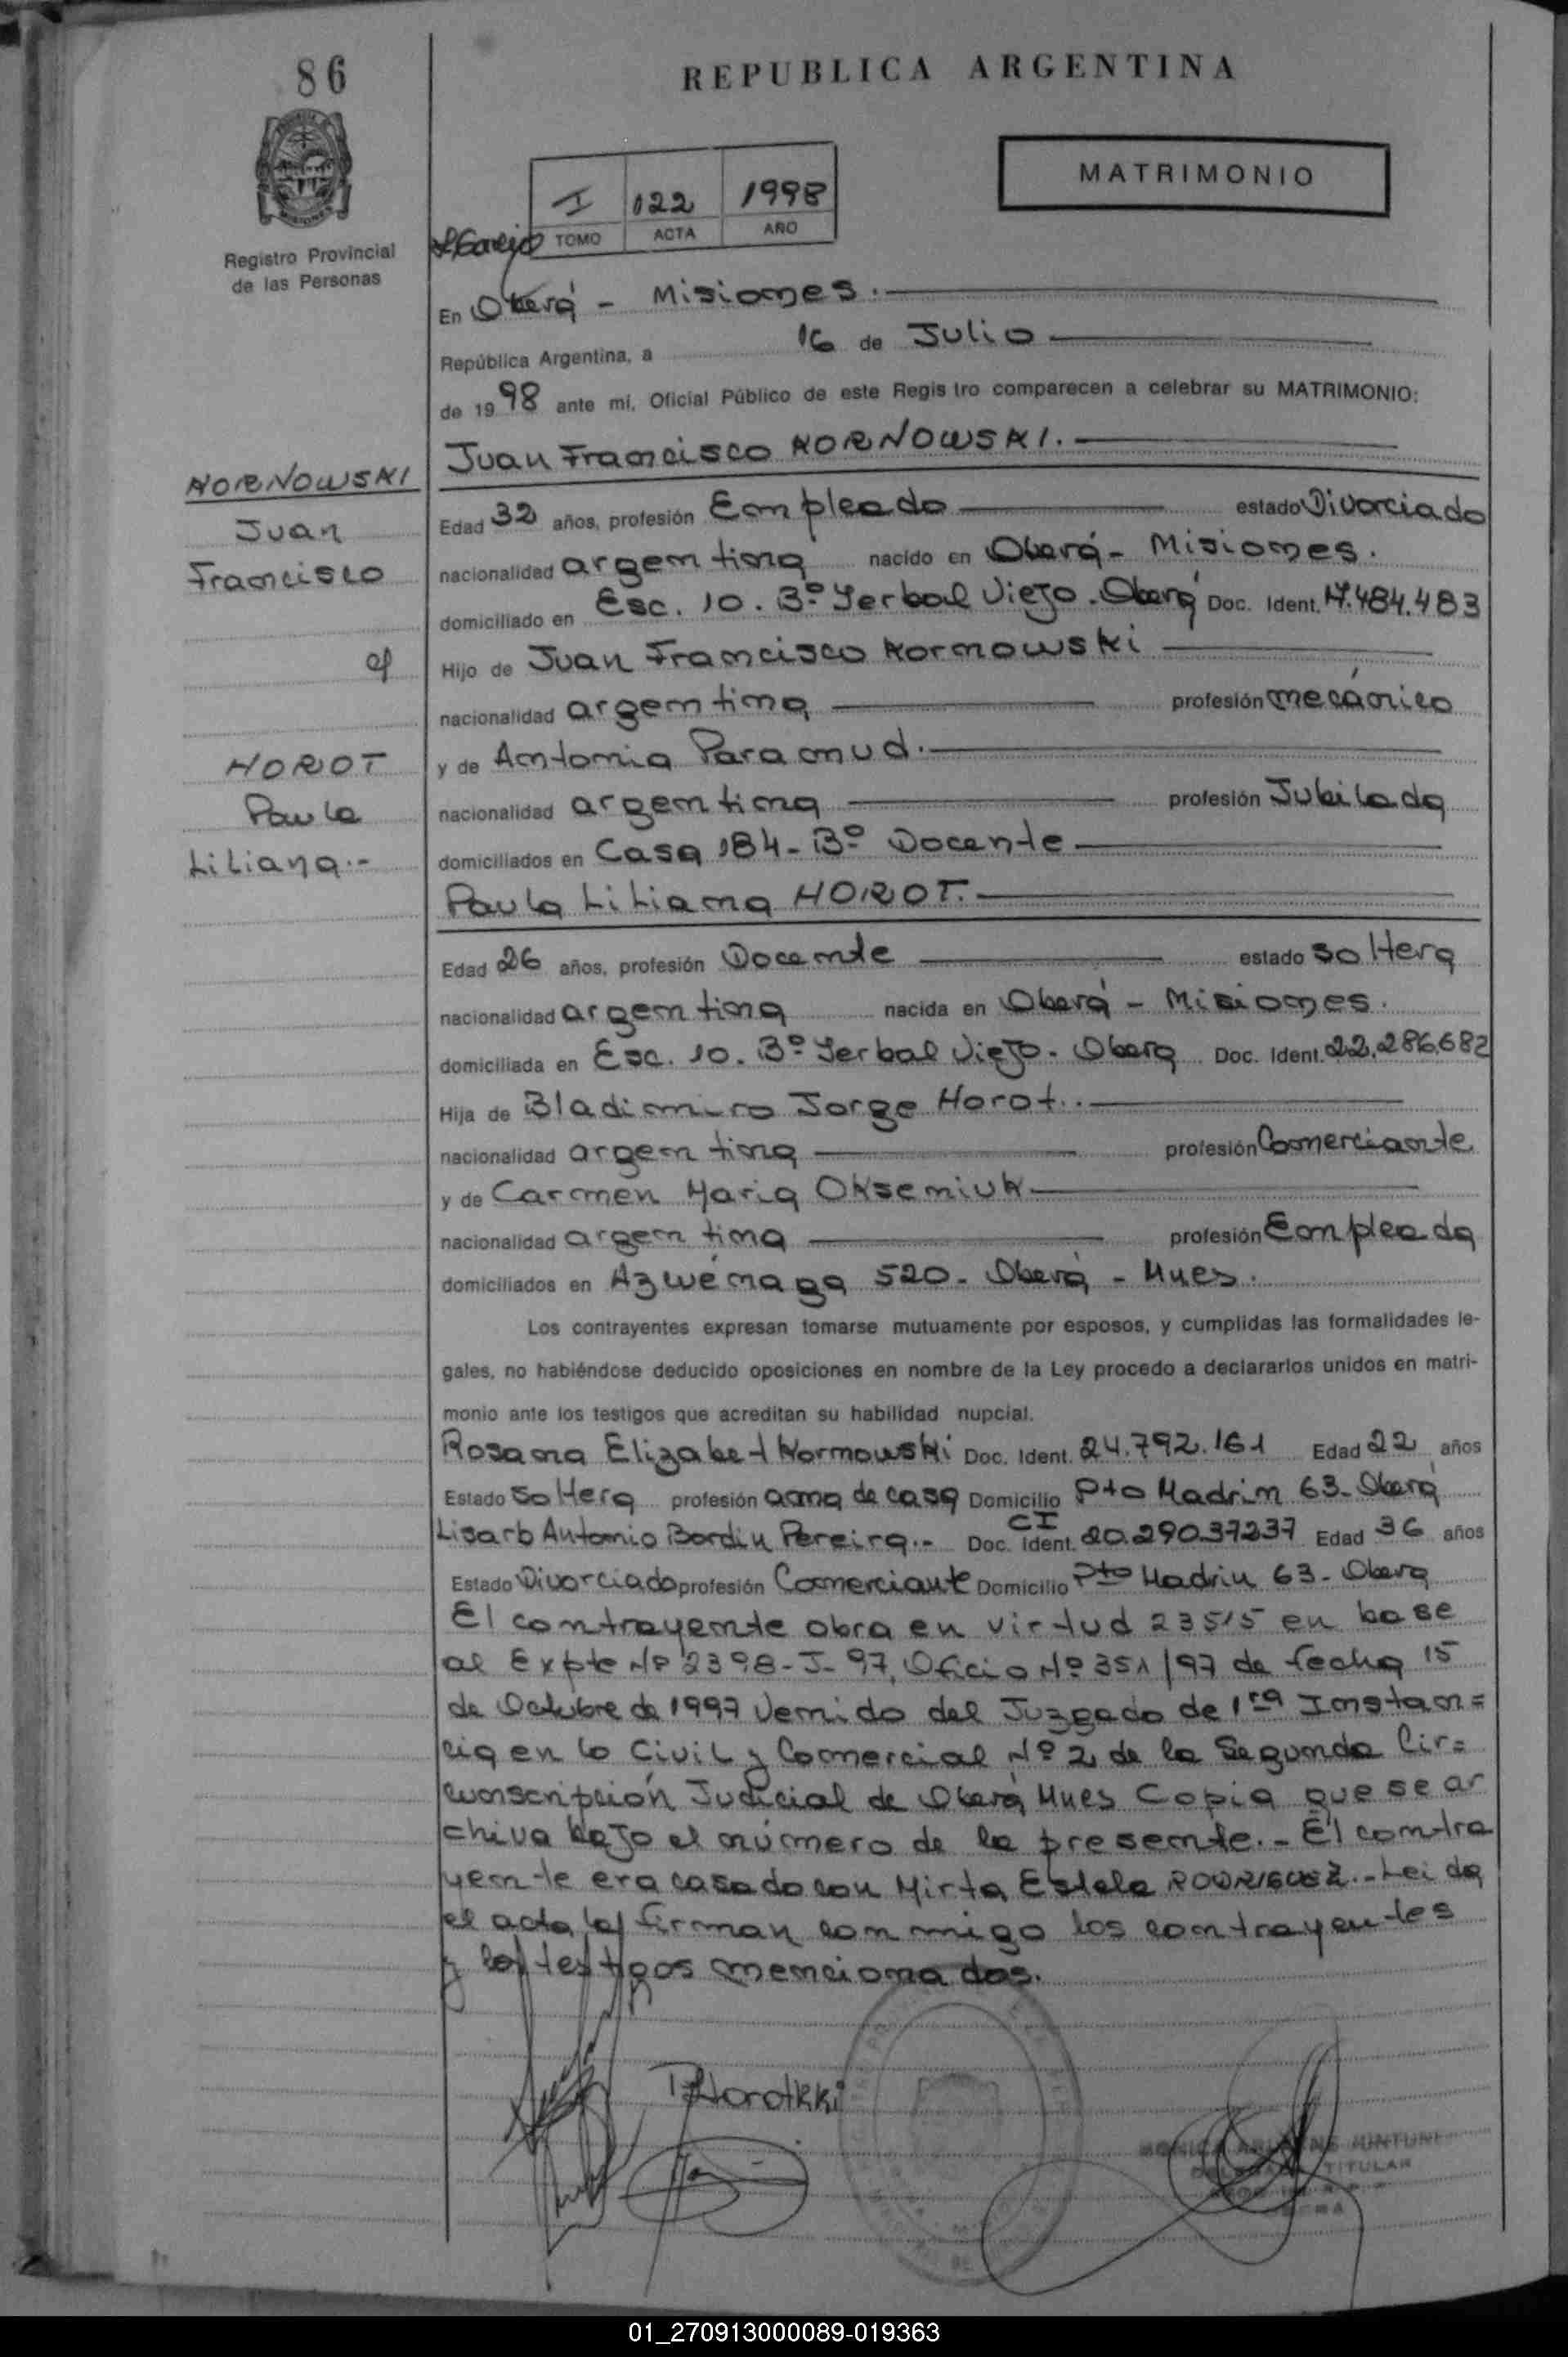 86
REPUBLICA ARGENTINA
MATRIMONIO
I 122 1998
TOMO ACTA AÑO
Registro Provincial
de las Personas
En Oberá - Misiones.
República Argentina, a 16 de Julio
de 1998 ante mí, Oficial Público de este Registro comparecen a celebrar su MATRIMONIO:
Juan Francisco KORNOWSKI.
KORNOWSKI
Juan
Francisco
c/
HOROT
Paula
Liliana.-
Edad 32 años, profesión Empleado estado Divorciado
nacionalidad argentina nacido en Oberá - Misiones.
domiciliado en Esc. 10. Bº Yerbal Viejo. Oberá Doc. Ident. 17.484.483
Hijo de Juan Francisco Kornowski
nacionalidad argentina profesión mecánico
y de Antonia Paramud.
nacionalidad argentina profesión Jubilada
domiciliados en Casa 184 - Bº Docente
Paula Liliana HOROT.
Edad 26 años, profesión Docente estado soltera
nacionalidad argentina nacida en Oberá - Misiones.
domiciliada en Esc. 10. Bº Yerbal Viejo - Obera Doc. Ident. 22.286.682
Hija de Bladimiro Jorge Horot.
nacionalidad argentina profesión Comerciante
y de Carmen Maria Okseniuk
nacionalidad argentina profesión Empleada
domiciliados en Azwénaga 520 - Oberá - Mnes.
Los contrayentes expresan tomarse mutuamente por esposos, y cumplidas las formalidades le-
gales, no habiéndose deducido oposiciones en nombre de la Ley procedo a declararlos unidos en matri-
monio ante los testigos que acreditan su habilidad nupcial.
Rosana Elizabet Kornowski Doc. Ident. 24.792.161 Edad 22 años
Estado soltera profesión ama de casa Domicilio Pto Madrin 63 - Oberá
Lisarb Antonio Bordin Pereira.- Doc. CI Ident. 20.29037237 Edad 36 años
Estado Divorciado profesión Comerciante Domicilio Pto Madrin 63 - Obera
El contrayente obra en virtud 23515 en base
al Expte Nº 2398-J-97, Oficio Nº 351/97 de fecha 15
de Octubre de 1997 venido del Juzgado de 1ra Instan=
cia en lo Civil y Comercial Nº 2 de la Segunda Cir=
cunscripción Judicial de Oberá Mnes Copia que se ar
chiva bajo el número de la presente.- El contra
yente era casado con Mirta Estela RODRIGUEZ.- Leida
el acta la firman conmigo los contrayentes
y los testigos mencionados.
TITULAR
01_270913000089-019363